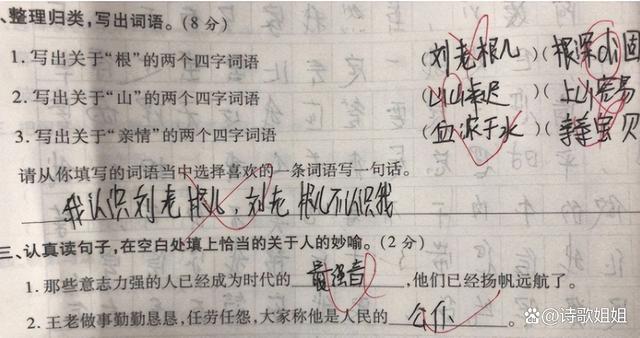 、整理归类,写出词语。(8分)
1. 写出关于“根”的两个四字词语 (刘老根儿)(根深小固
2. 写出关于“山”的两个四字词语 (山山来迟)(上山容易
3. 写出关于“亲情”的两个四字词语 (血浓于水)(亲亲宝贝
请从你填写的词语当中选择喜欢的一条词语写一句话。
我认识刘老根儿,刘老根儿不认识我
三、认真读句子,在空白处填上恰当的关于人的妙喻。(2分)
1. 那些意志力强的人已经成为时代的 最强音 ,他们已经扬帆远航了。
2. 王老师做事勤勤恳恳,任劳任怨,大家称他是人民的 公仆 。
@诗歌姐姐